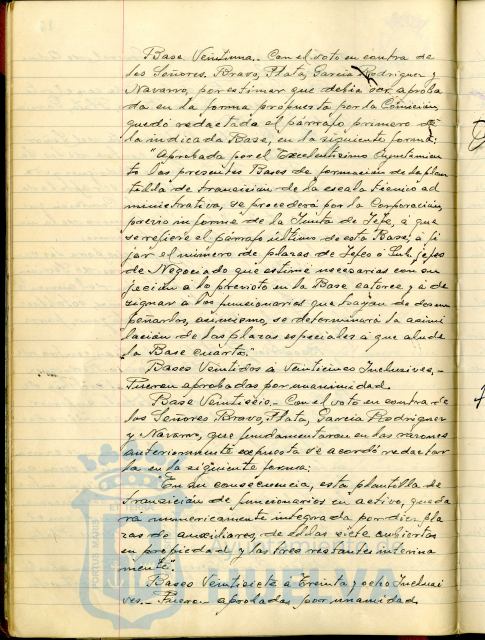 Base Veintiuna.- Con el voto en contra de
los Señores. Bravo, Plata, Garcia Rodriguez y
Navarro, por estimar que debia ser aproba
da en la forma propuesta por la Comision,
quedó redactada el párrafo primero de
la indicada Base, en la siguiente forma:
"Aprobada por el Excelentisimo Ayuntamien
to las presentes Bases de formacion de la plan
tilla de transicion de la escala tecnico ad
ministrativa, se procederá por la Corporacion,
previo informe de la Junta de Jefe, á que
se refiere el párrafo último de esta Base, á fi
jar el numero de plazas de Jefes o Sub-jefes
de Negociado que estime necesarias con su
jeción a lo previsto en la Base catorce y á de
signar a los funcionarios que hayan de desem
peñarlos, asimismo, se determinará la asimi
lacion de las plazas especiales a que alude
la Base cuarta."
Bases Veintidos a Veinticinco Inclusives.-
Fueron aprobadas por unanimidad.
Base Veintiseis.- Con el voto en contra de
los Señores Bravo, Plata, Garcia Rodriguez
y Navarro, que fundamentaron en las razones
anteriormente expuesta se acordó redactar
la en la siguiente forma:
"En su consecuencia, esta plantilla de
transicion de funcionarios en activo, queda
rá numericamente integrada por diez pla
zas de auxiliares, de ellas siete cubiertas
en propiedad y las tres restantes interina
mente".
Bases Veintisiete á Treinta y ocho Inclusi
ves.- Fueron aprobadas por unanimidad
PORTUS MARIS
Ayuntamiento de
HUELVA